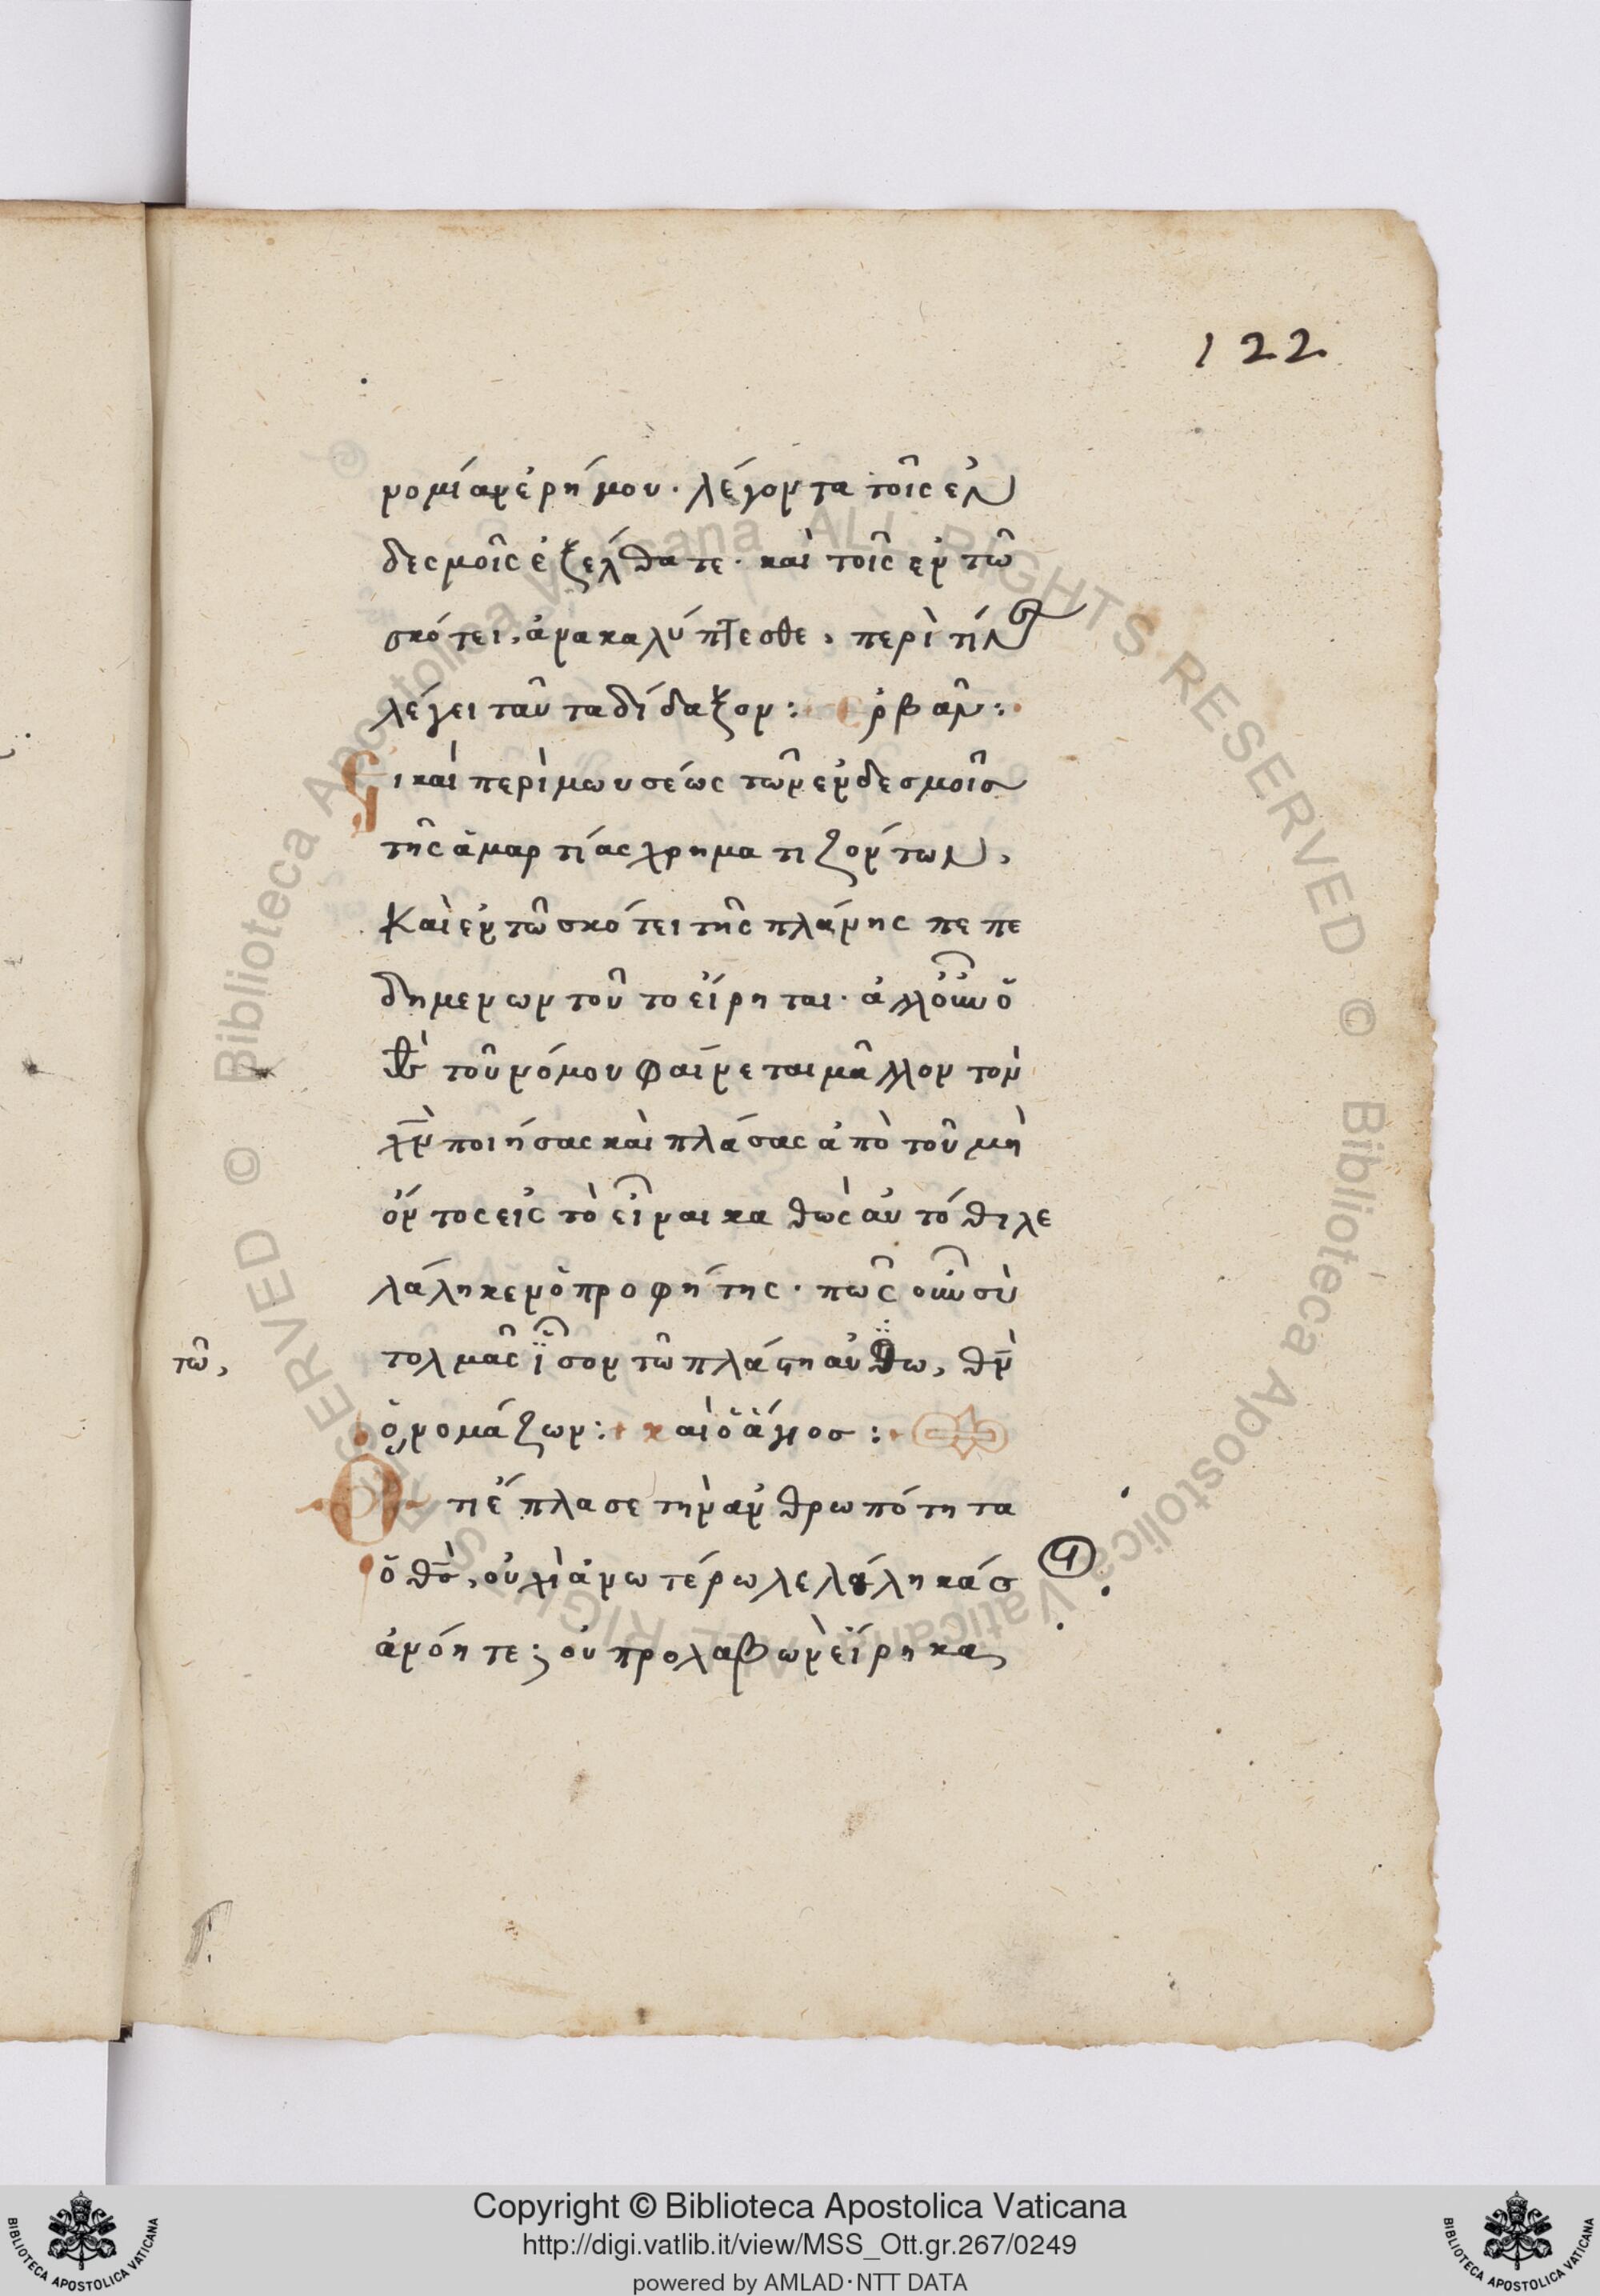 122
νομίαν ἐρήμου· λέγοντα τοῖς ἐν
δεσμοῖς ἐξέλθατε· καὶ τοῖς ἐν τῶ
σκότει, ἀνακαλύπτεσθε, περὶ τίνων
λέγει ταῦτα δίδαξον: ἑρβάν:
Εἰ καὶ περὶ μωυσέως τῶν ἐν δεσμοῖσ
τῆς ἁμαρτίας χρηματιζόντων,
Καὶ ἐν τῶ σκότει τῆς πλάνης πεπε
δημενων τοῦτο εἴρηται· ἀλλ οὖν ὁ
θσ τοῦ νόμου φαίνεται μᾶλλον τὸν
χν ποιήσας καὶ πλάσας ἀπὸ τοῦ μὴ
ὄντος εἰς τὸ εἶναι καθὼς αὐτόθι λε
λάληκεν ὁ προφήτης· πῶς οὖν σὺ
τῶ, τολμᾶς ἴσον τῶ πλάστη αὐτῶ, θν
ὀνομάζων: καὶ ὁ ἅγιος:
Ὅτι ἔπλασε τὴν ἀνθρωπότητα
ὁ θσ, οὐχὶ ἀνωτέρω λελάληκάσ
ἀνόητε; οὐ προλαβὼν εἴρηκας
Copyright © Biblioteca Apostolica Vaticana
http://digi.vatlib.it/view/MSS_Ott.gr.267/0249
powered by AMLAD·NTT DATA
BIBLIOTECA APOSTOLICA VATICANA
BIBLIOTECA APOSTOLICA VATICANA
© Biblioteca Apostolica Vaticana ALL RIGHTS RESERVED © Biblioteca Apostolica Vaticana ALL RIGHTS RESERVED